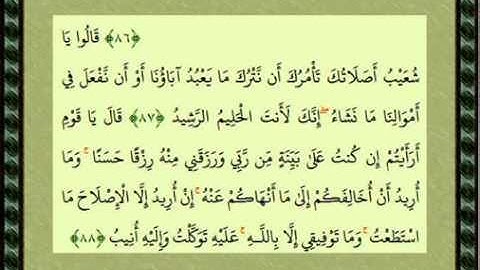 ﴿٨٦﴾ قَالُوا يَا
شُعَيْبُ أَصَلَاتُكَ تَأْمُرُكَ أَن نَّتْرُكَ مَا يَعْبُدُ آبَاؤُنَا أَوْ أَن نَّفْعَلَ فِي
أَمْوَالِنَا مَا نَشَاءُ ۖ إِنَّكَ لَأَنتَ الْحَلِيمُ الرَّشِيدُ ﴿٨٧﴾ قَالَ يَا قَوْمِ
أَرَأَيْتُمْ إِن كُنتُ عَلَىٰ بَيِّنَةٍ مِّن رَّبِّي وَرَزَقَنِي مِنْهُ رِزْقًا حَسَنًا ۚ وَمَا
أُرِيدُ أَنْ أُخَالِفَكُمْ إِلَىٰ مَا أَنْهَاكُمْ عَنْهُ ۚ إِنْ أُرِيدُ إِلَّا الْإِصْلَاحَ مَا
اسْتَطَعْتُ ۚ وَمَا تَوْفِيقِي إِلَّا بِاللَّـهِ ۚ عَلَيْهِ تَوَكَّلْتُ وَإِلَيْهِ أُنِيبُ ﴿٨٨﴾